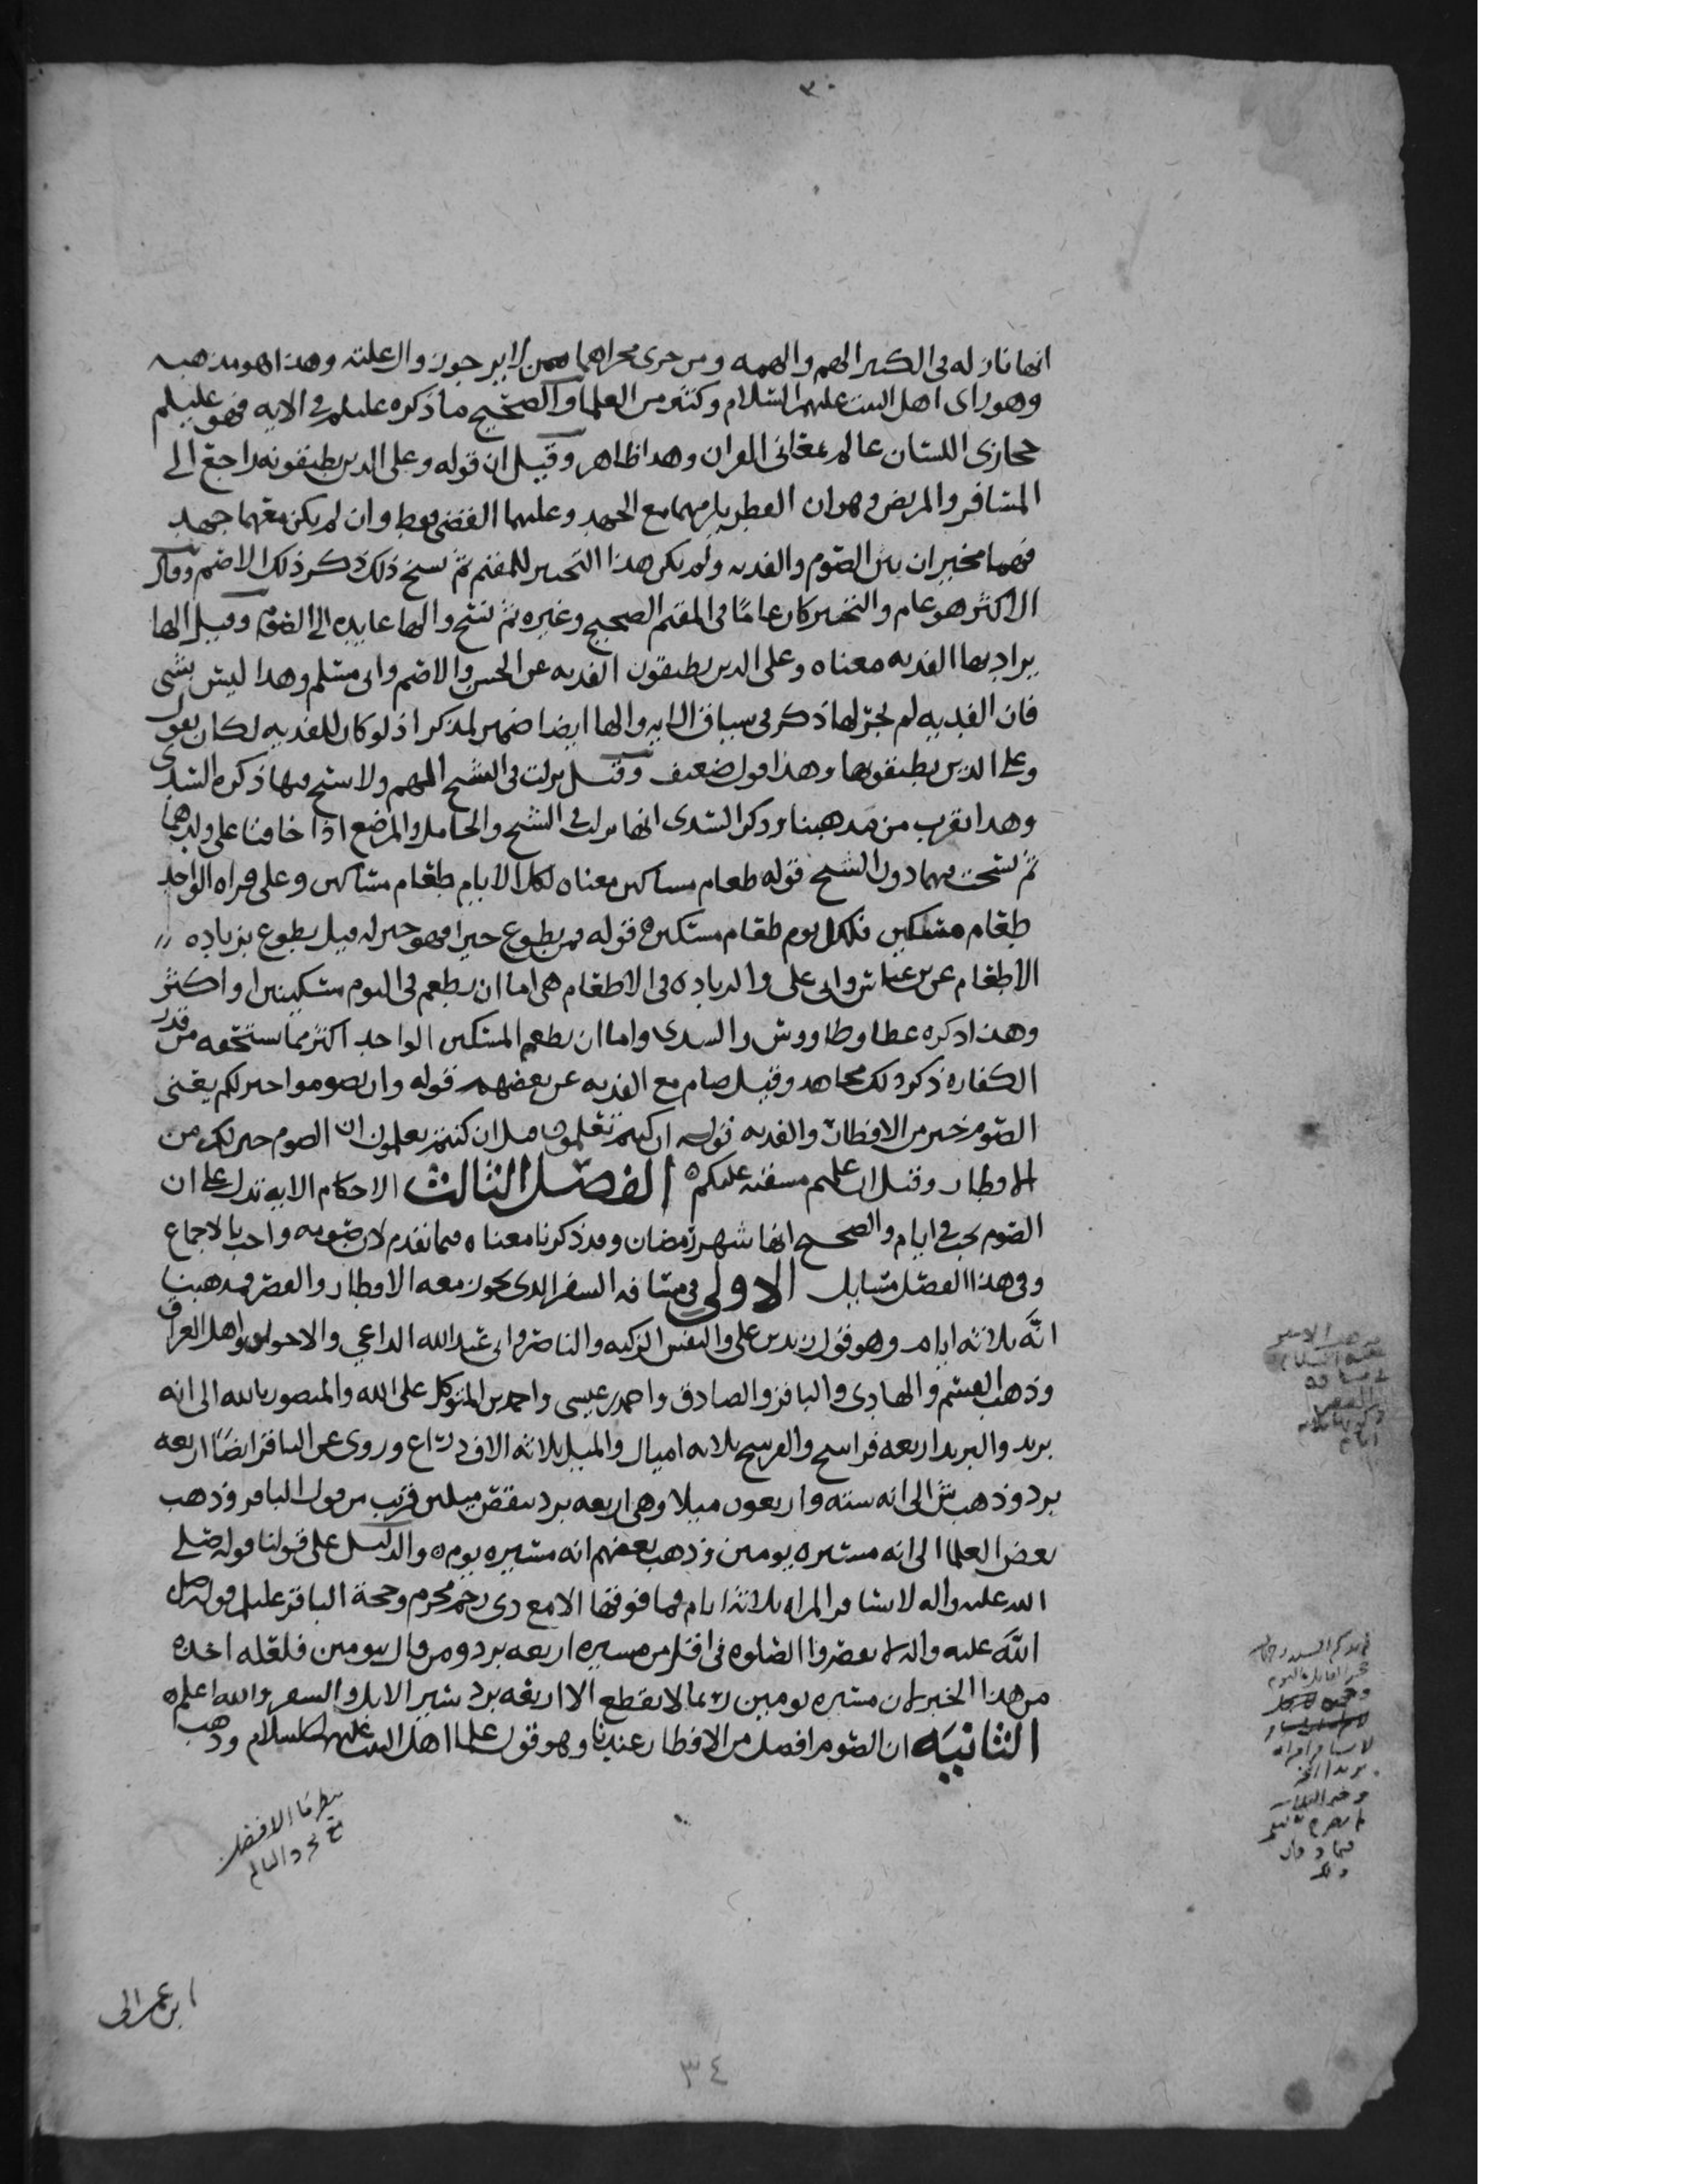 ٣٠
انها نازله في الكبير الهم والهمه ومن جرى مجراهما ممن لا يرجون زوال علته وهذا هو مذهبه
وهو راى اهل البيت عليهم السلام وكثير من العلما والصحيح ما ذكره عليلم في الايه فهو عليلم
حجازي اللسان عالم بمعاني القران وهذا ظاهر وقيل ان قوله وعلى الدين يطيقونه راجع الى
المسافر والمريض وهو ان الفطر يلزمهما مع الجهد وعليهما القضى فقط وان لم يكن معهما جهد
فهما مخيران بين الصوم والفديه ولم يكن هذا التخيير للمقيم ثم نسخ ذلك ذكر ذلك الاصم وقال
الاكثر هو عام والتخيير كان عامًا في المقيم الصحيح وغيره ثم نسخ والها عايده الى الصوم وقيل الها
يراد بها الفديه معناه وعلى الدين يطيقون الفديه عن الحسن والاصم وابي مسلم وهذا ليس بشى
فان الفديه لم يجر لها ذكر في سياق الايه والها ايضا ضمير لمذكر اذ لو كان للفديه لكان يقول
وعلى الذين يطيقونها وهذا قول ضعيف وقيل نزلت في الشيخ الهم ولا نسخ فيها ذكره السدي
وهدا يقرب من مذهبنا وذكر السدى انها نزلت في الشيخ والحامل والمرضع اذا خافتا على ولدهما
ثم نسخت فيهما دون الشيخ قوله طعام مساكين معناه لكل الايام طعام مساكين وعلى قراه الواحد
طعام مسكين فلكل يوم طعام مسكين قوله فمن تطوع خيرا فهو خير له قيل تطوع بزياده
الاطعام عن بن عباس وابي على والزياده في الاطعام هى اما ان يطعم في اليوم مسكينين او اكثر
وهذا ذكره عطا وطاووس والسدى واما ان يطعم المسكين الواحد اكثر مما يستحقه من قدر
الكفاره ذكر ذلك مجاهد وقيل صام مع الفديه عن بعضهم قوله وان تصوموا خير لكم يعنى
الصوم خير من الافطار والفديه قوله ان كنتم تعلمون قيل ان كنتم تعلمون ان الصوم خير لكم من
الافطار وقيل ان علمتم مشقته عليكم الفصل الثالث الاحكام الايه تدل على ان
الصوم يجب في ايام والصحيح انها شهر رمضان وقد ذكرنا معناه فيما تقدم لان صومه واجب بالاجماع
وفي هذا الفصل مسايل الاولى في مسافه السفر الدى يجوز معه الافطار والقصر فمذهبنا
انّه ثلاثه ايام وهو قول زيد بن على والنفس الزكيه والناصر وابي عبدالله الداعي والاخوان واهل العراق
وذهب القسم والهادى والباقر والصادق واحمد بن عيسى واحمد بن المتوكل على الله والمنصور بالله الى انه
بريد والبريد اربعه فراسخ والفرسخ ثلاثه اميال والميل ثلاثه الاف ذراع وروى عن الباقر ايضًا اربعه
برد وذهب ش الى انه سته واربعون ميلا وهى اربعه برد ينقص ميلين قريب من قول الباقر وذهب
بعض العلما الى انه مسيره يومين وذهب بعضهم انه مسيره يوم والدليل على قولنا قوله صلى
الله عليه واله لا تسافر المراه ثلاثة ايام فما فوقها الا مع ذى رحم محرم وحجة الباقر عليلم قوله صلى
الله عليه واله لا تقصروا الصلوه في اقل من مسيره اربعه برد ومن قال بيومين فلعله اخذه
من هذا الخبر لان مسيره يومين ربما لا يقطع الا اربعه برد بسير الابل والسفر والله اعلم
الثانيه ان الصوم افضل من الافطار عندنا وهو قول علما اهل البيت عليهم السلام وذهب
مذهب الامير
عليه السلام
في مسافه
القصر
ثلاثه
ايام
لا تسافر امراه
بريدا
ينظر ما الافضل
ابن عمر الى
٣٤